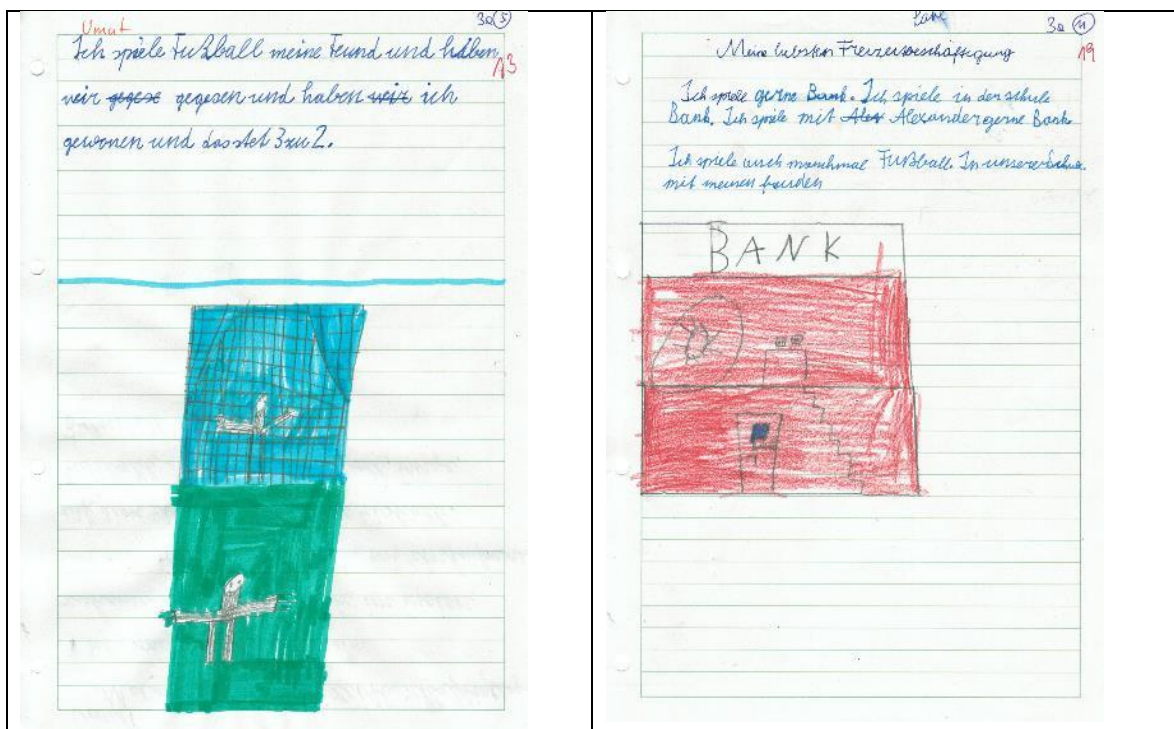 Umut
3a 5
Ich spiele Fußball meine Feund und haben
13
weir gegese gegesen und haben weir ich
gewonen und das stet 3zu2.
3a 11
Meine liebsten Freizeitbeschäftigung
19
Ich spiele gerne Bank. Ich spiele in der schule
Bank. Ich spiele mit Alex Alexander gerne Bank
Ich spiele auch manchmal Fußball. In unserer
mit meinen
BANK